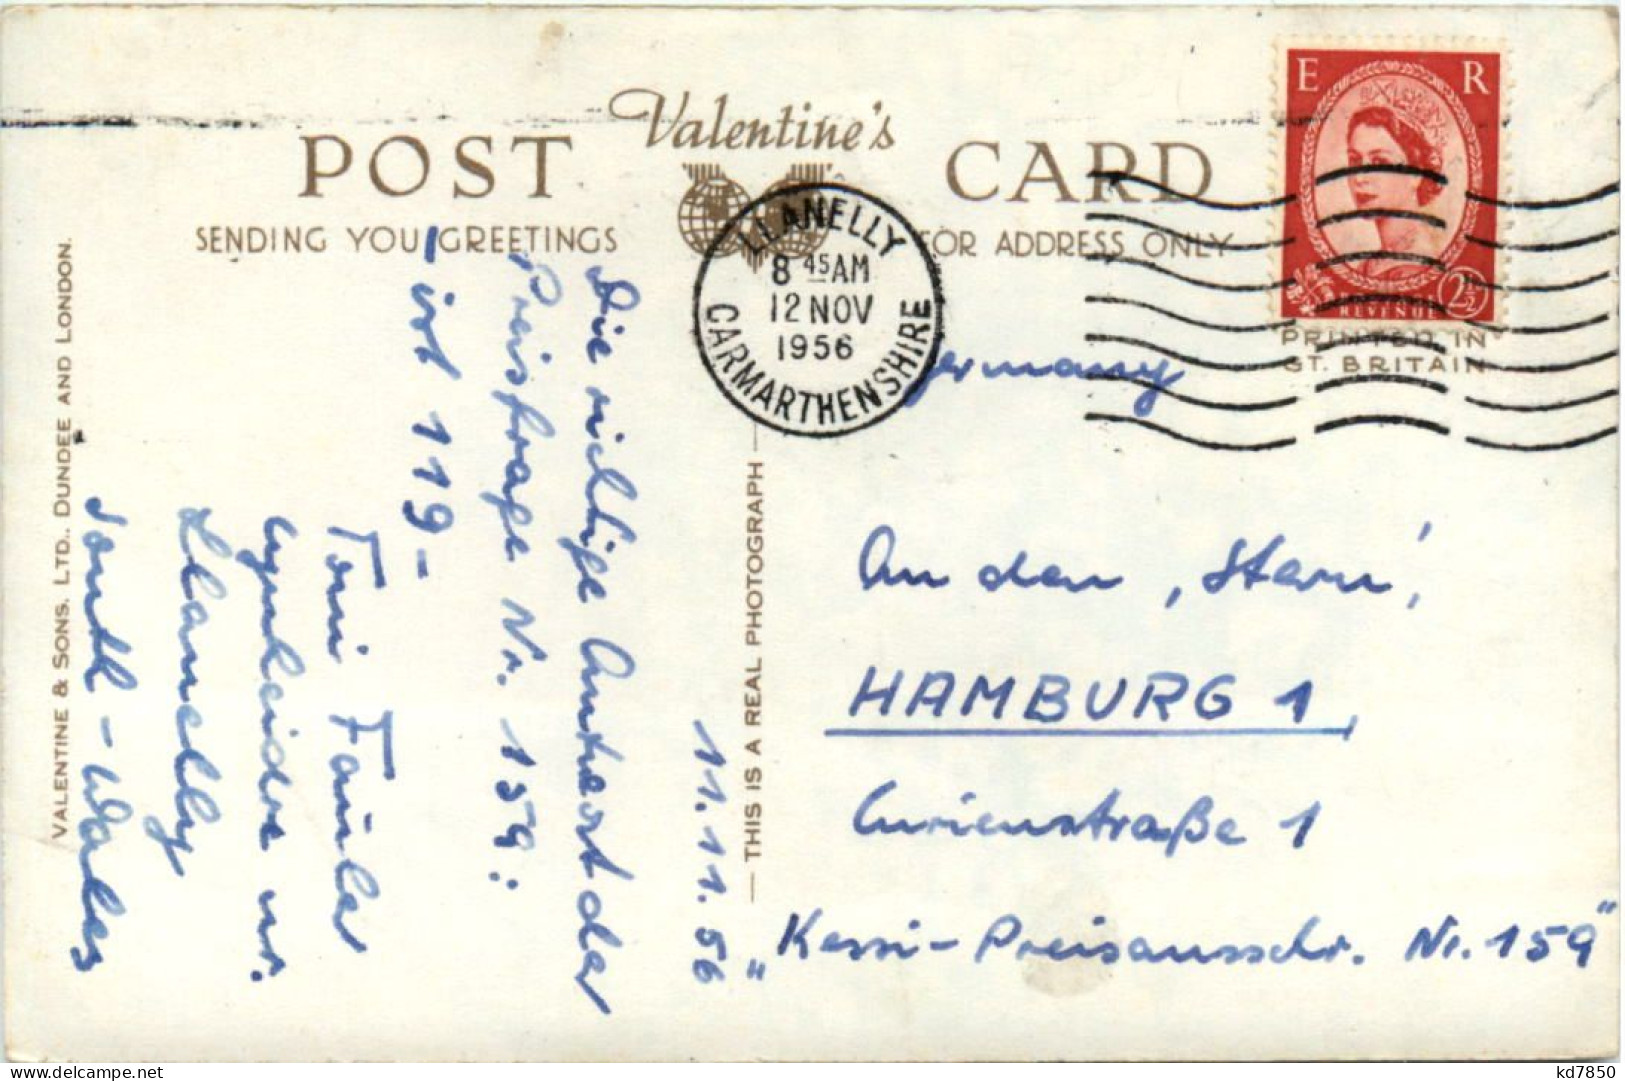 POST Valentine's CARD
SENDING YOU GREETINGS
FOR ADDRESS ONLY
LLANELLY
8 45 AM
12 NOV
1956
CARMARTHENSHIRE
E R
REVENUE 2½
PRINTED IN
GT. BRITAIN
VALENTINE & SONS. LTD., DUNDEE AND LONDON.
— THIS IS A REAL PHOTOGRAPH —
11.11.56
Die richtige Antwort der
Preisfrage Nr. 159:
- ist 119 -
Toni
nr.
Llanelly
South - Wales
Germany
An den ‚Stern',
HAMBURG 1,
Curienstraße 1
"Kessi - Preisausschr. Nr. 159"
kd7850